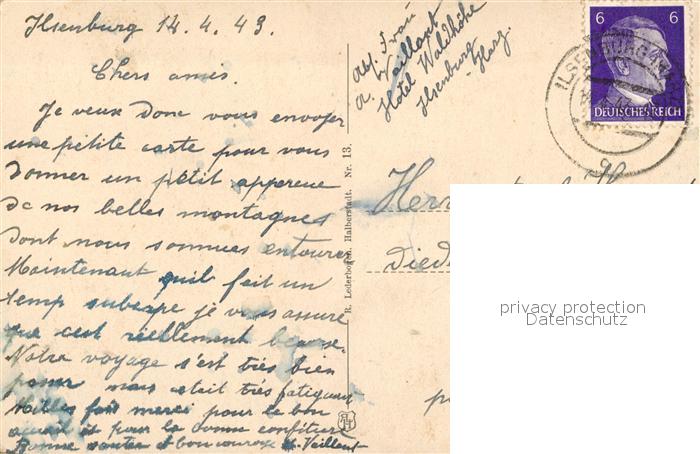 Ilsenburg 14.4.43.
Chers amis.
Je veux donc vous envoyer
une petite carte pour vous
donner un petit appercue
de nos belles montagnes
dont nous sommes entoure
Maintenant quil fait un
temp suberpe je vous assure
que cest réellement beau
Notre voyage s'est très bien
passer mais etait très fatiguant
Milles fois merci pour le bon
acueil et pour la bonne confiture
Bonne santer et bon courage Vaillant
R. Lederbogen, Halberstadt. Nr. 13.
Abs. Frau
A. Vaillant
Hotel Waldhöhe
Ilsenburg
Harz.
6 6
DEUTSCHES REICH
ILSENBURG
Herr
Died
privacy protection
Datenschutz